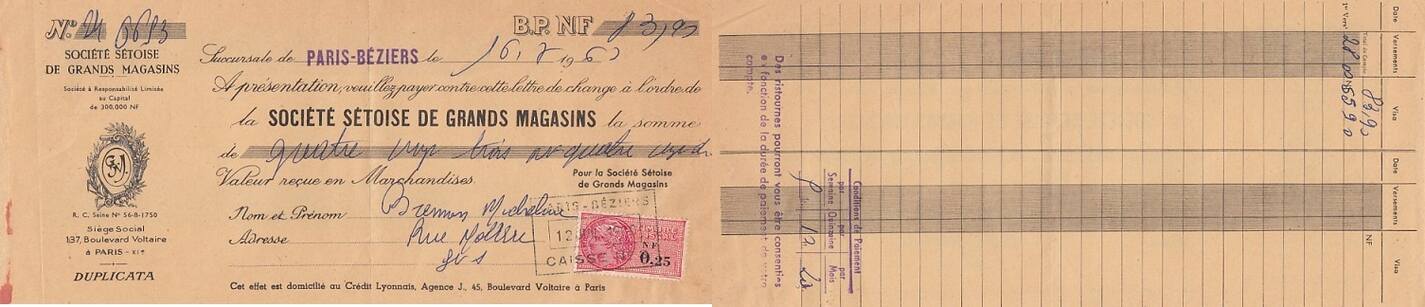 Nº
B.P. NF 83,90
SOCIÉTÉ SÉTOISE
DE GRANDS MAGASINS
Société à Responsabilité Limitée
au Capital
de 300.000 NF
R. C. Seine Nº 56-B-1750
Siège Social
137, Boulevard Voltaire
à PARIS - XIe
DUPLICATA
Succursale de PARIS-BÉZIERS le 196
A présentation, veuillez payer contre cette lettre de change à l'ordre de
la SOCIÉTÉ SÉTOISE DE GRANDS MAGASINS la somme
de quatre vingt trois NF quatre vingt dix
Valeur reçue en Marchandises.
Pour la Société Sétoise
de Grands Magasins
Nom et Prénom Micheline
Adresse Rue Molière
PARIS-BÉZIERS
CAISSE
NF
0,25
Cet effet est domicilié au Crédit Lyonnais, Agence J., 45, Boulevard Voltaire à Paris
Des ristournes pourront vous être consenties
en fonction de la durée de paiement de votre
compte.
Conditions de Paiement
par Semaine
par Quinzaine
par Mois
Date
Versements
Visa
Date
Versements
Visa
NF
1er Vers
Total du Compte
83,90
28,00
NF
55,90